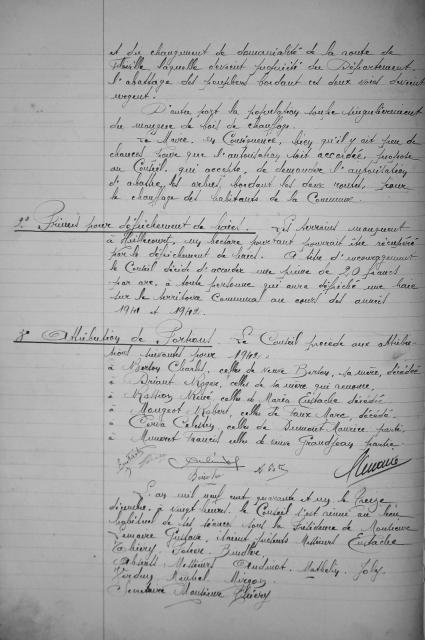 et du changement de domanialité de la route de
Fléville laquelle devient propriété du Département
l'abattage des peupliers bordant ces deux voies devient
urgent.
D'autre part la population souffre singulièrement
du manque de bois de chauffage.
Le Maire, en Conséquence, bien qu'il y ait peu de
chances pour que l'autorisation soit accordée, propose
au Conseil, qui accepte, de demander l'autorisation
d'abattre les arbres bordant les deux routes, pour
le chauffage des habitants de la Commune.
2° Primes pour défrichement de haies. Les terrains manquent
à Heillecourt, un hectare pourtant pourrait être récupéré
par le défrichement de haies. A titre d'encouragement
le Conseil décide d'accorder une prime de 20 francs
par are, à toute personne qui aura défriché une haie
sur le territoire Communal au cours des années
1941 et 1942.
3° Attribution de Portions. Le Conseil procède aux attribu-
tions suivantes pour 1942:
à Berton Charles, celles de Veuve Berton, sa mère, décédée
à Briant Roger, celles de sa mère qui renonce,
à Masson René, celles de Maria Eustache décédée
à Mougeot Robert, celles de Faux Marc, décédé.
à Célestin, celles de Maurice parti.
à Francis celles de veuve Grandjean partie
Lemoine
L'an mil neuf cent quarante et un le Treize
décembre, à vingt heures, le Conseil s'est réuni au lieu
habituel de ses séances sous la Présidence de Monsieur
Lemoine Gustave, Maire présents Messieurs Eustache
Thiéry
Absents Messieurs Mathelin Joly
Secrétaire Monsieur Thiéry